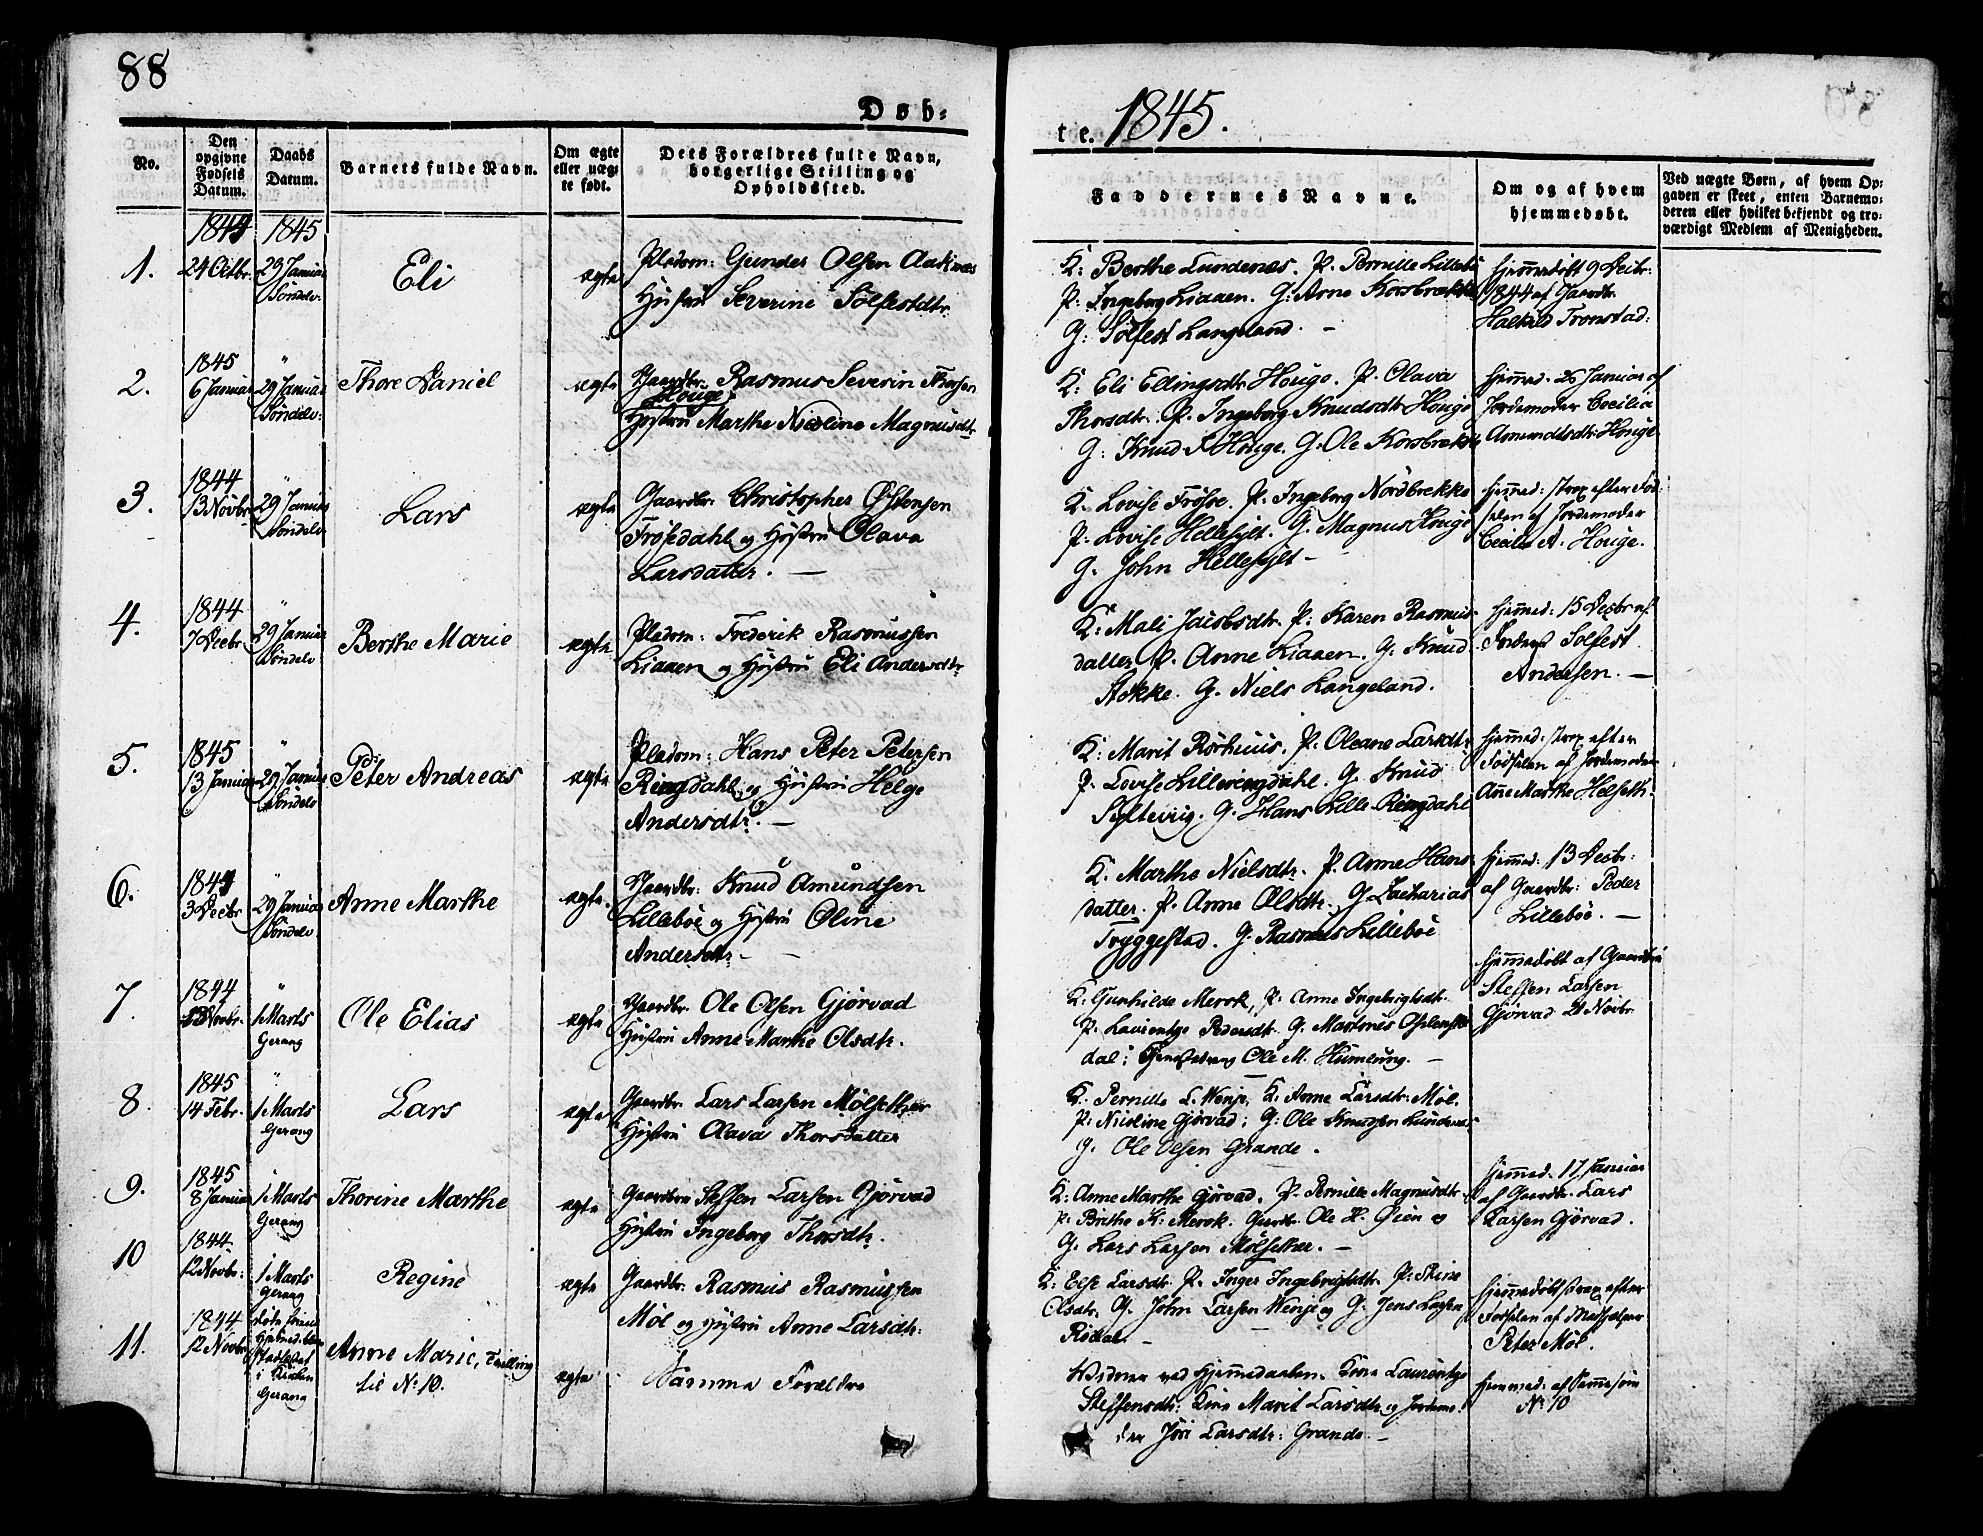 88
Døb-
te. 1845.
No.
Den opgivne Fødsels Datum.
Daabs Datum.
Barnets fulde Navn.
Om ægte eller uægte født.
Dets Forældres fulde Navn, borgerlige Stilling og Opholdssted.
Faddernes Navne.
Om og af hvem hjemmedøbt.
Ved uægte Børn, af hvem Opgaven er skeet, enten Barnemoderen eller hvilket bekjendt og troværdigt Medlem af Menigheden.
1844 1845
1. 24 Octbr. 29 Januar Søndelv. Eli ægte
Pladsm: Gunder Olsen Aaknæs
Hustru Severine Sølfestdtr.
K: Berthe Lundenes. P. Pernille Lillebø
P. Ingeborg Liaaen. G: Arne Korsbrekke
G: Sølfest Langeland. -
Hjemmedøbt 9 Decbr:
1844 af Gaardbr.
Halkild Tronstad.
2. 1845 6 Januar 29 Januar Søndelv: Thore Daniel ægte
Gaardbr: Rasmus Severin Thorsen
Houge,
Hustru Marthe Nicoline Magnusdtr.
K: Eli Ellingsdtr. Houge. P. Olava
Thorsdtr. P. Ingeborg Knudsdtr. Houge
G: Knud K Houge. G: Ole Korsbrekke
Hjemmed: 26 Januar af
Jordemoder Cecilia
Amundsdtr. Houge
3. 1844 13 Novbr. 29 Januar Søndelv Lars ægte
Gaardbr: Christopher Østensen
Frøisdahl og Hustru Olava
Larsdatter. -
K. Lovise Frøse. P: Ingeborg Nordbrekke
P. Lovise Hellesylt. G. Magnus Houge
G. John Hellesylt -
Hjemmed: strax efter Fød-
selen af Jordemoder
Cecilie A. Houge.
4. 1844 7 Decbr 29 Januar Søndelv Berthe Marie ægte
Pladsm: Frederik Rasmussen
Liaaen og Hustru Eli Andersdtr.
K: Mali Jacobsdtr. P: Karen Rasmus-
datter. P. Anne Liaaen. G. Knud
Stokke. G. Niels Langeland.
Hjemmed: 15 Decbr af
Sølfest
Andersen. -
5. 1845 13 Januar 29 Januar Søndelv Peter Andreas ægte
Pladsm: Hans Peter Petersen
Ringdahl og Hustru Helge
Andersdtr. -
K: Marit Rørhuus. P. Oleane Larsdtr.
P. Lovise Lilleringdahl. G. Knud
Syltevig. G. Hans Lille-Ringdahl
Hjemmed: strax efter
Fødselen af Jordemoder
Ane Marthe Helseth.
6. 1844 3 Decbr 29 Januar Søndelv Anne Marthe ægte.
Gaardbr: Knud Amundsen
Lillebøe og Hustru Oline
Andersdtr. -
K. Marthe Nielsdtr. P. Anne Hans-
datter. P. Anne Olsdtr. G Zacharias
Tryggestad. G. Rasmus Lillebøe
Hjemmed: 13 Decbr:
af Gaardbr: Peder
Lillebøe. -
7. 1844 Novbr. 1 Marts Gerang Ole Elias ægte
Gaardbr. Ole Olsen Gjørvad
Hustru Anne Marthe Olsdtr.
K. Gunhilde Merok, P. Anne Ingebrigtsdtr.
P. Laurentze Pedersdtr. G. Martinus
dal; Ole M. Humlung. -
Hjemmedøbt af Gaardbr
Steffen Larsen
Gjørvad 21 Novbr
8. 1845 14 Febr. 1 Marts Gerang Lars ægte
Gaardbr. Lars Larsen Mølsether
Hustru Olava Thorsdatter
K. Pernille L. Wenje, K. Anne Larsdtr. Møl.
P: Nicoline Gjørvad; G: Ole Knudsen Lundenæs
G. Ole Olsen Grande.
9. 1845 8 Januar 1 Marts Gerang Thorine Marthe ægte
Gaardbr. Steffen Larsen Gjørvad
Hustru Ingeborg Thorsdtr.
K: Anne Marthe Gjørvad. P. Pernille Magnusdtr.
P: Brithe K: Merok. Ole H. Øien og
G. Lars Larsen Mølsether. -
Hjemmed: 17 Januar
af Gaardbr. Lars
Larsen Gjørvad.
10 1844 12 Novbr: 1 Marts Gerang Regine ægte
Gaardbr. Rasmus Rasmussen
Møl og Hustru Anne Larsdtr.
K: Else Larsdtr. P. Inger Ingebrigtsdtr. P: Stine
Olsdtr. G. John Larsen Wenje og G. Jens Larsen
Rødal. -
Hjemmedøbt strax efter
Fødselen af
Peter Møl.
11. 1844 12 Novbr i Kirken Gerang Anne Marie, Tvilling
til No 10. ægte Samme Forældre
Vidner ved Hjemmedaaben. Kone Laurentze
Steffensdtr: Kone Marit Larsdtr. og Jordemo-
der Jøri Larsdtr: Grande. -
Hjemmed: af samme som
No 10